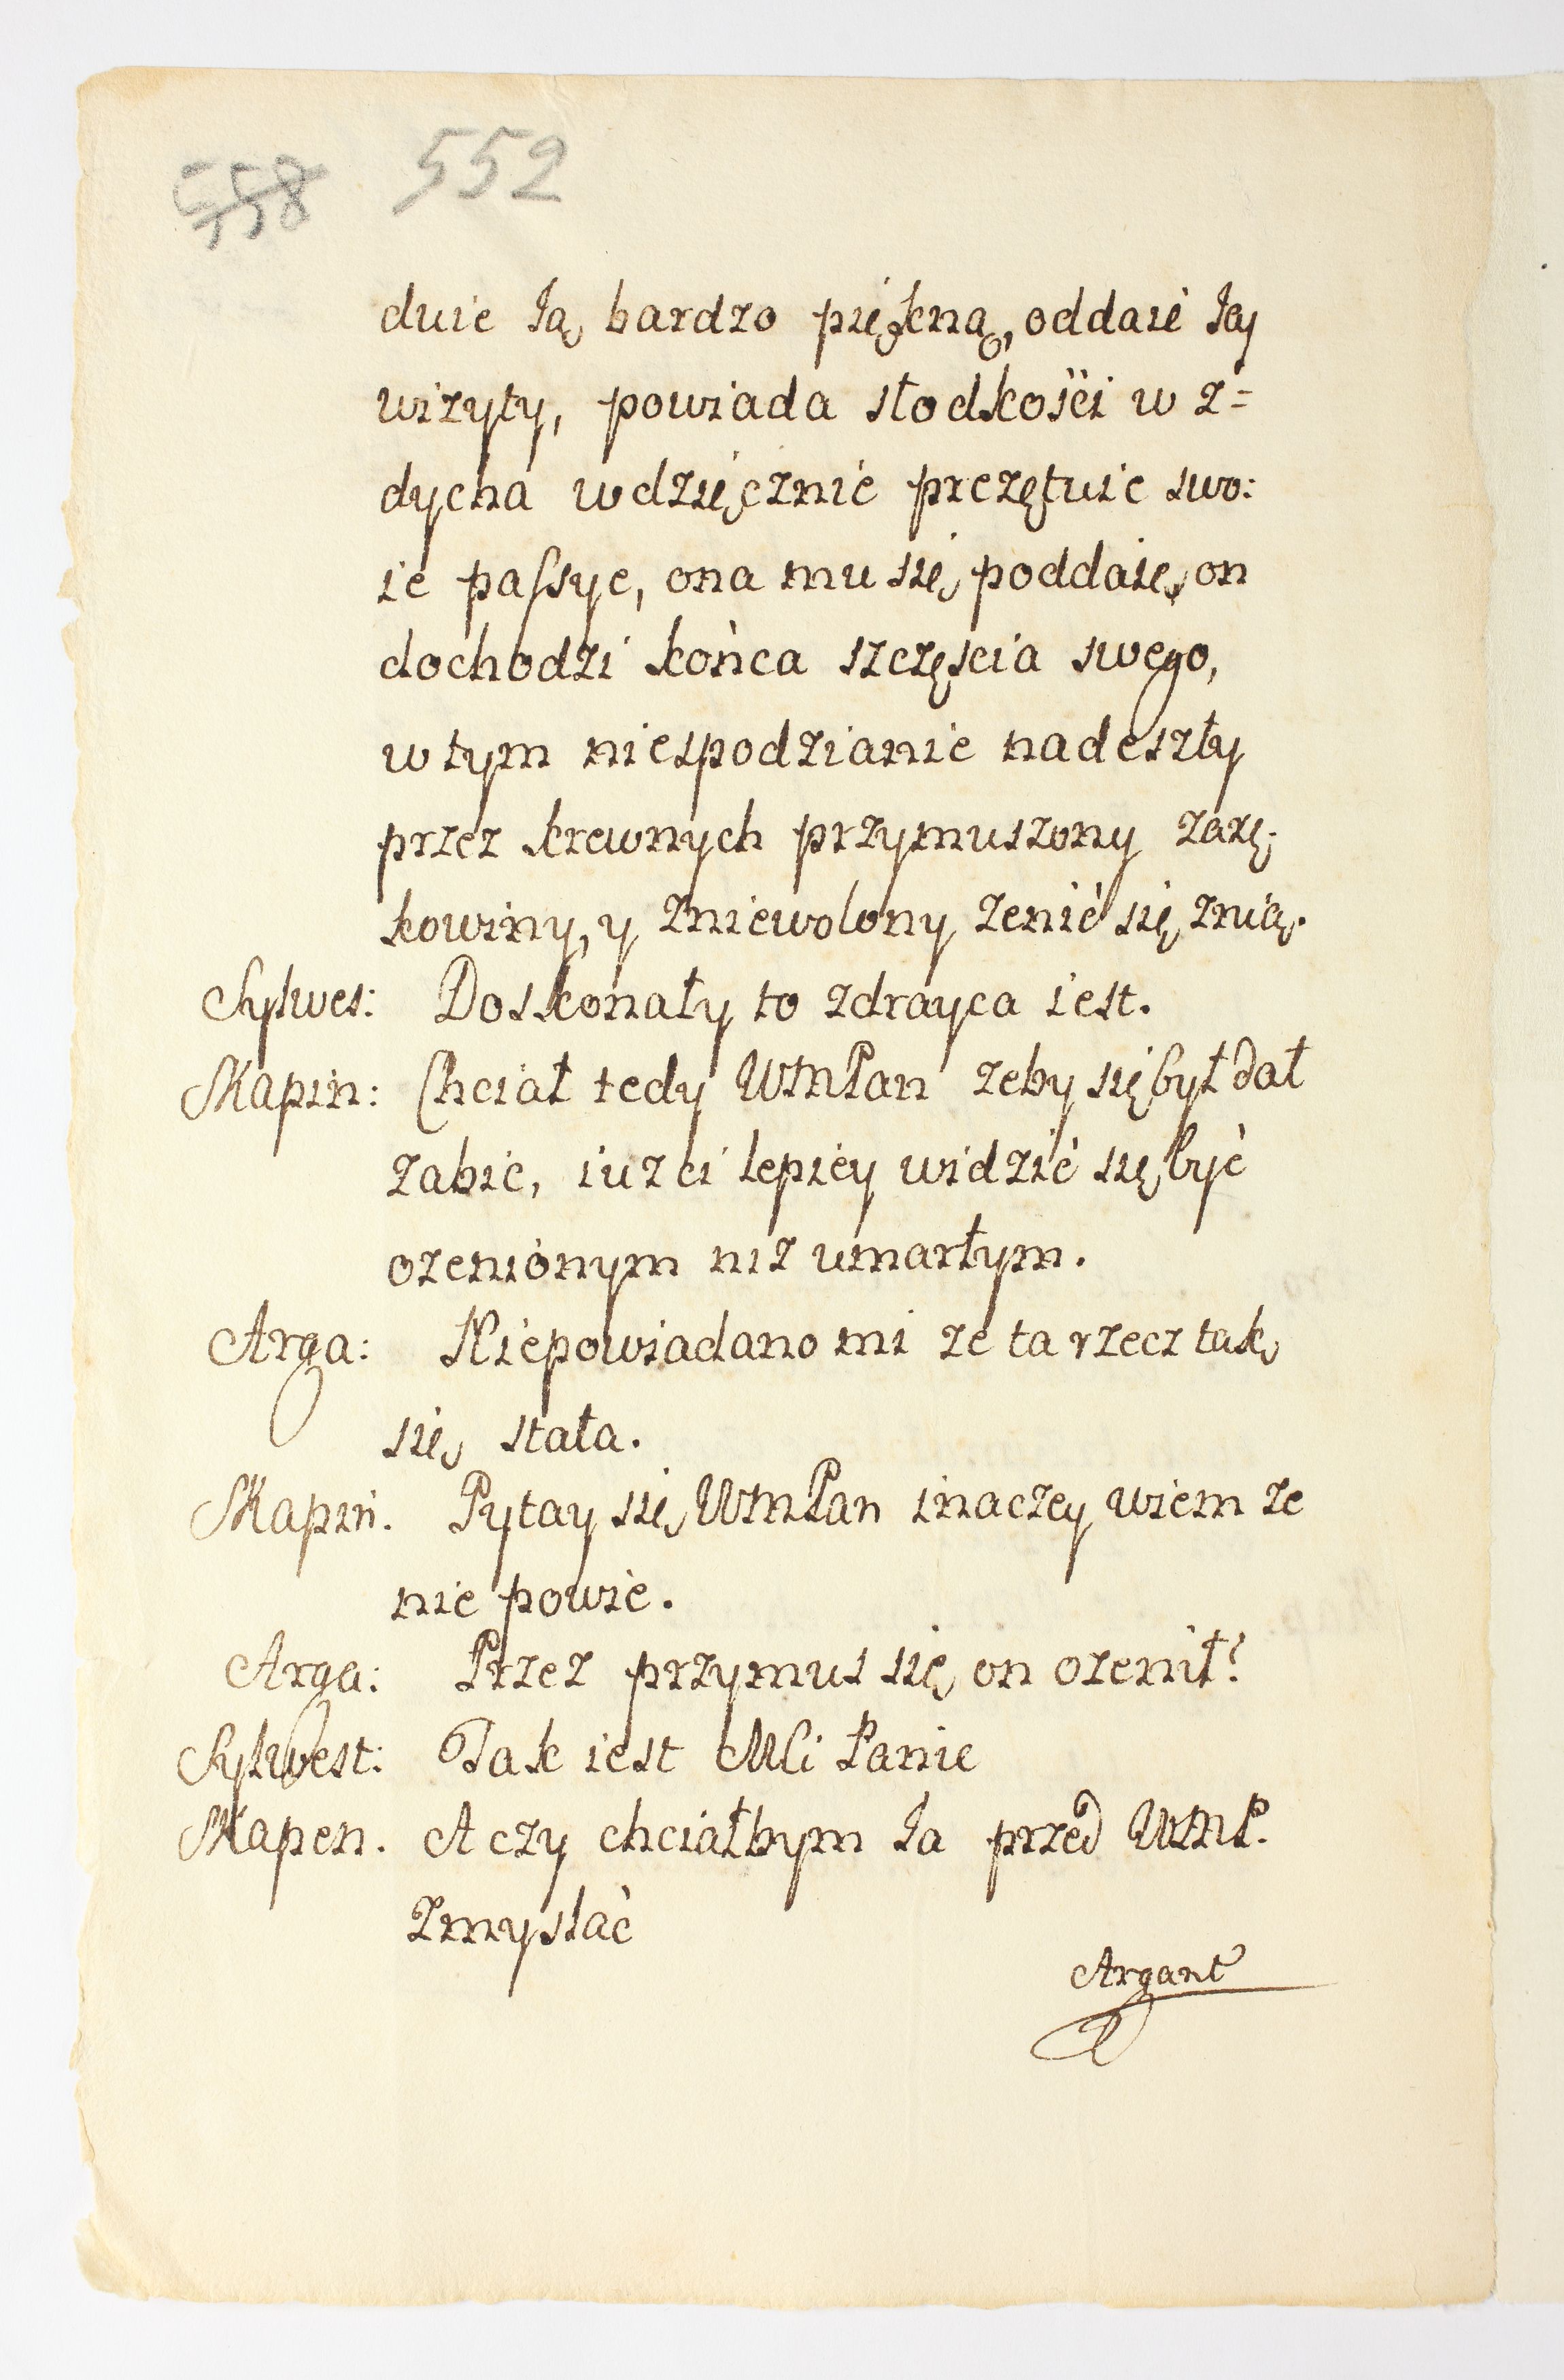 558 552
duie Ią bardzo piękną, oddaie Iey
wizyty, powiada słodkości w z=
dycha wdzięcznie prezętuie swo:
ie passye, ona mu się poddaie, on
dochodzi końca szczęscia swego,
w tym niespodzianie nadeszły
przez krewnych przymuszony zarę-
kowiny, y zniewolony zenić się znią.
Sylwes: Doskonały to zdrayca iest.
Skapin: Chciał tedy WMPan zeby się był dał
zabic, iuz ci lepiey widzić się być
ozenionym niz umarłym.
Arga: Niepowiadano mi ze ta rzecz tak
się stała.
Skapin. Pytay się WMPan inaczey wiem ze
nie powie.
Arga: Przez przymus się on ozenił?
Sylwest: Tak iest Mci Panie
Skapen. A czy chciałbym Ia przed WMP.
zmyslać
Argant